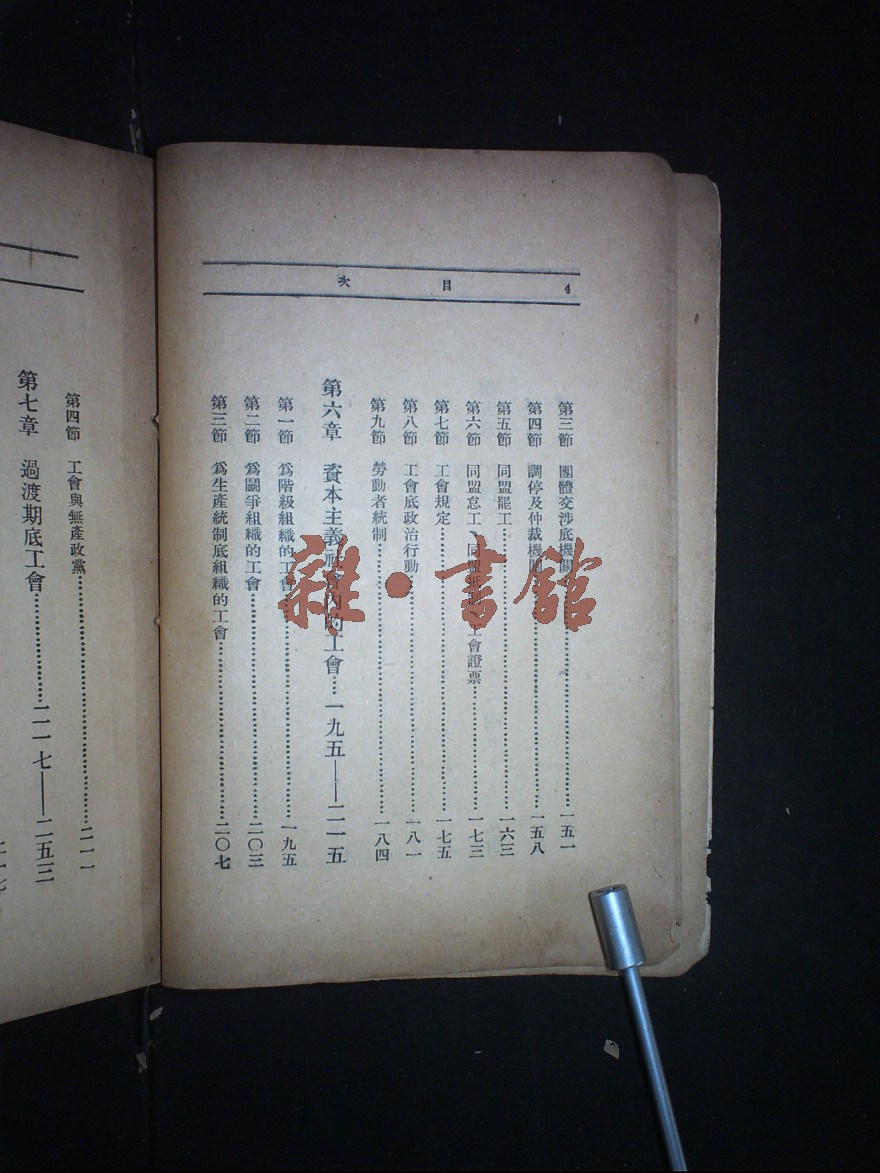 4 目次
第三節 團體交涉底機關……一五一
第四節 調停及仲裁機關……一五八
第五節 同盟罷工……一六三
第六節 同盟怠工、同盟抵 工會證票……一七三
第七節 工會規定……一七五
第八節 工會底政治行動……一八一
第九節 勞動者統制……一八四
第六章 資本主義社會內的工會……一九五——二一五
第一節 爲階級組織的工會……一九五
第二節 爲鬭爭組織的工會……二〇三
第三節 爲生產統制底組織的工會……二〇七
第四節 工會與無產政黨……二一一
第七章 過渡期底工會……二一七——二五三
雜·書館